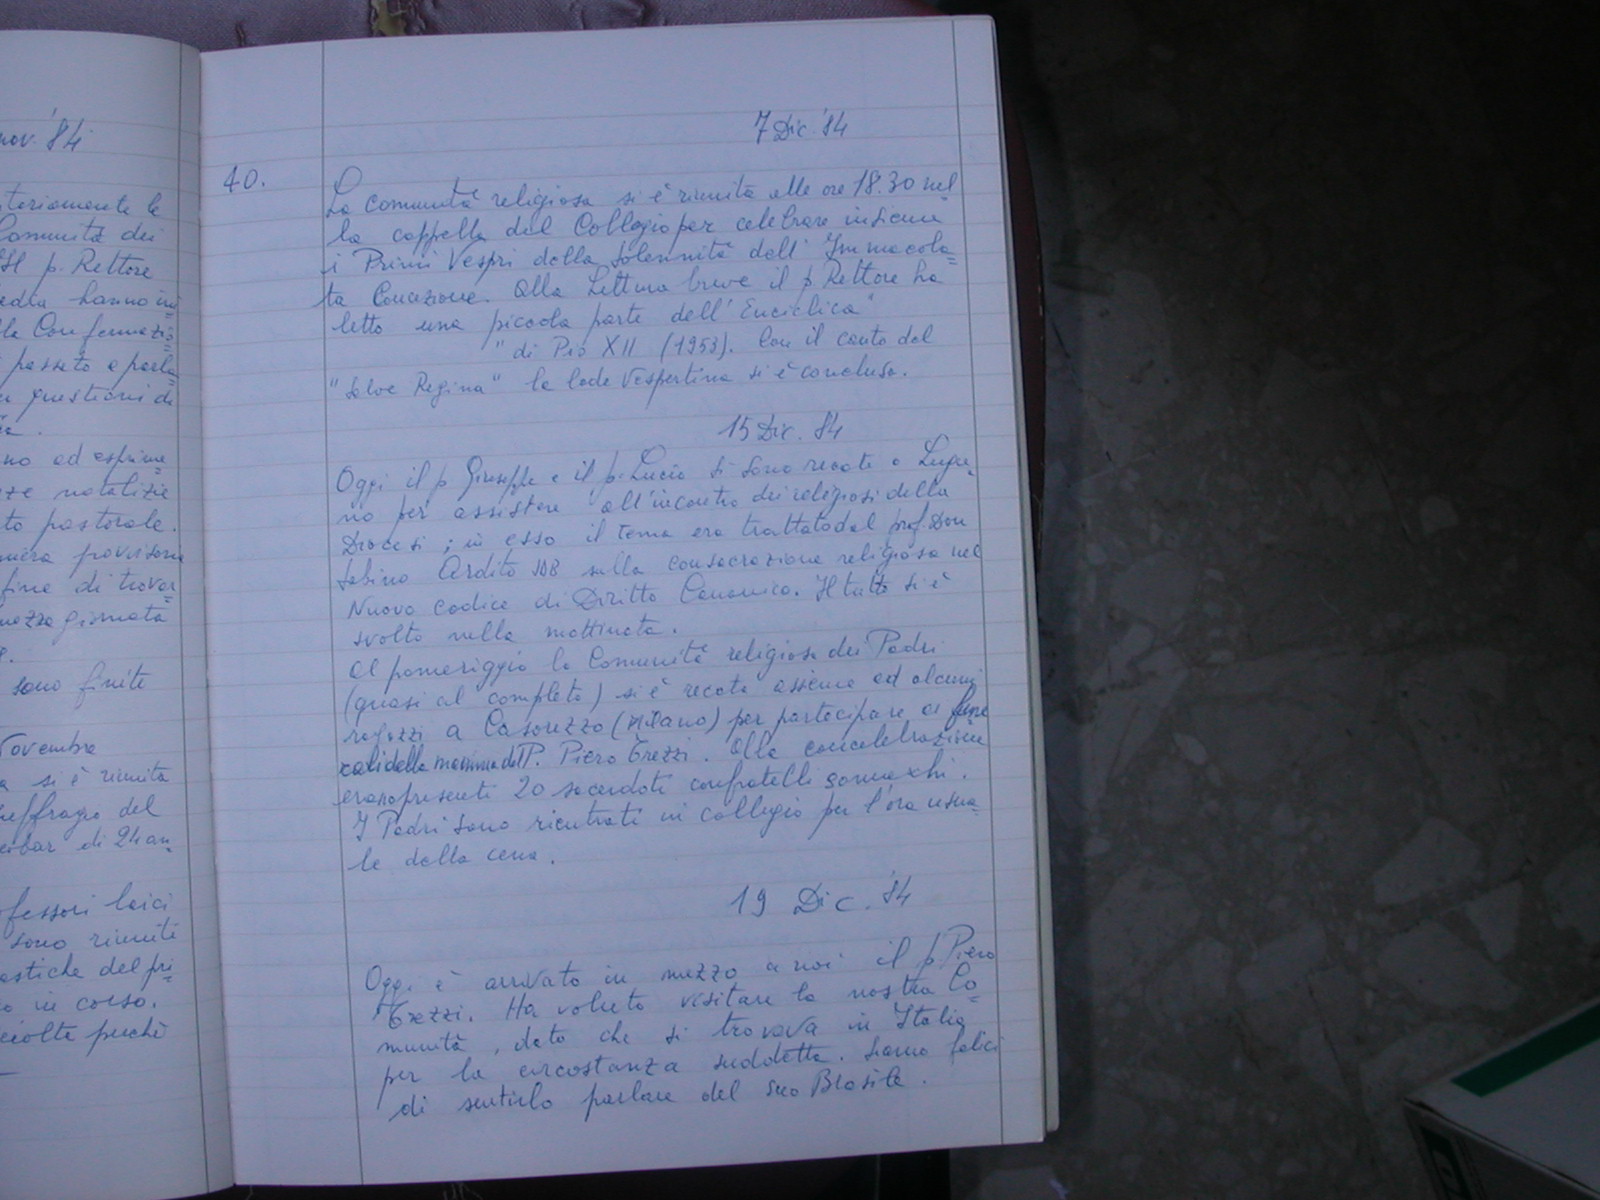 nov. '84
teriamente le
Comunità dei
Il p. Rettore
hanno ini
lle Confermazio=
passato e parla=
questioni di
no ed esprime=
ze natalizie
to pastorale.
fine di trovar=
mezza giornata
sono finite
Novembre
a si è riunita
suffragio del
di 24 an=
ofessori laici
sono riuniti
astiche del pri=
o in corso.
ciolta perchè
7 Dic. '84
40.
La comunità religiosa si è riunita alle ore 18.30 nel
la cappella del Collegio per celebrare insieme
i Primi Vespri della Solennità dell' Immacola=
ta Concezione. Alla Lettura breve il p. Rettore ha
letto una piccola parte dell' Enciclica "
" di Pio XII (1953). Con il canto del
"Salve Regina" la lode Vespertina si è conclusa.
15 Dic. 84
Oggi il p. Giuseppe e il p. Lucio si sono recati a Luga=
no per assistere all'incontro dei religiosi della
Diocesi; in esso il tema era trattato dal prof. Don
Sabino Ardito SDB sulla consacrazione religiosa nel
Nuovo Codice di Diritto Canonico. Il tutto si è
svolto nella mattinata.
Al pomeriggio la Comunità religiosa dei Padri
(quasi al completo) si è recata assieme ad alcuni
ragazzi a Casorezzo (Milano) per partecipare ai fune
rali della mamma del P. Piero Trezzi. Alla concelebrazione
erano presenti 20 sacerdoti confratelli somaschi.
I Padri sono rientrati in collegio per l'ora usua=
le della cena.
19 Dic. '84
Oggi è arrivato in mezzo a noi il p. Piero
Trezzi. Ha voluto visitare la nostra Co=
munità, dato che si trovava in Italia
per la circostanza suddetta. Siamo felici
di sentirlo parlare del suo Brasile.